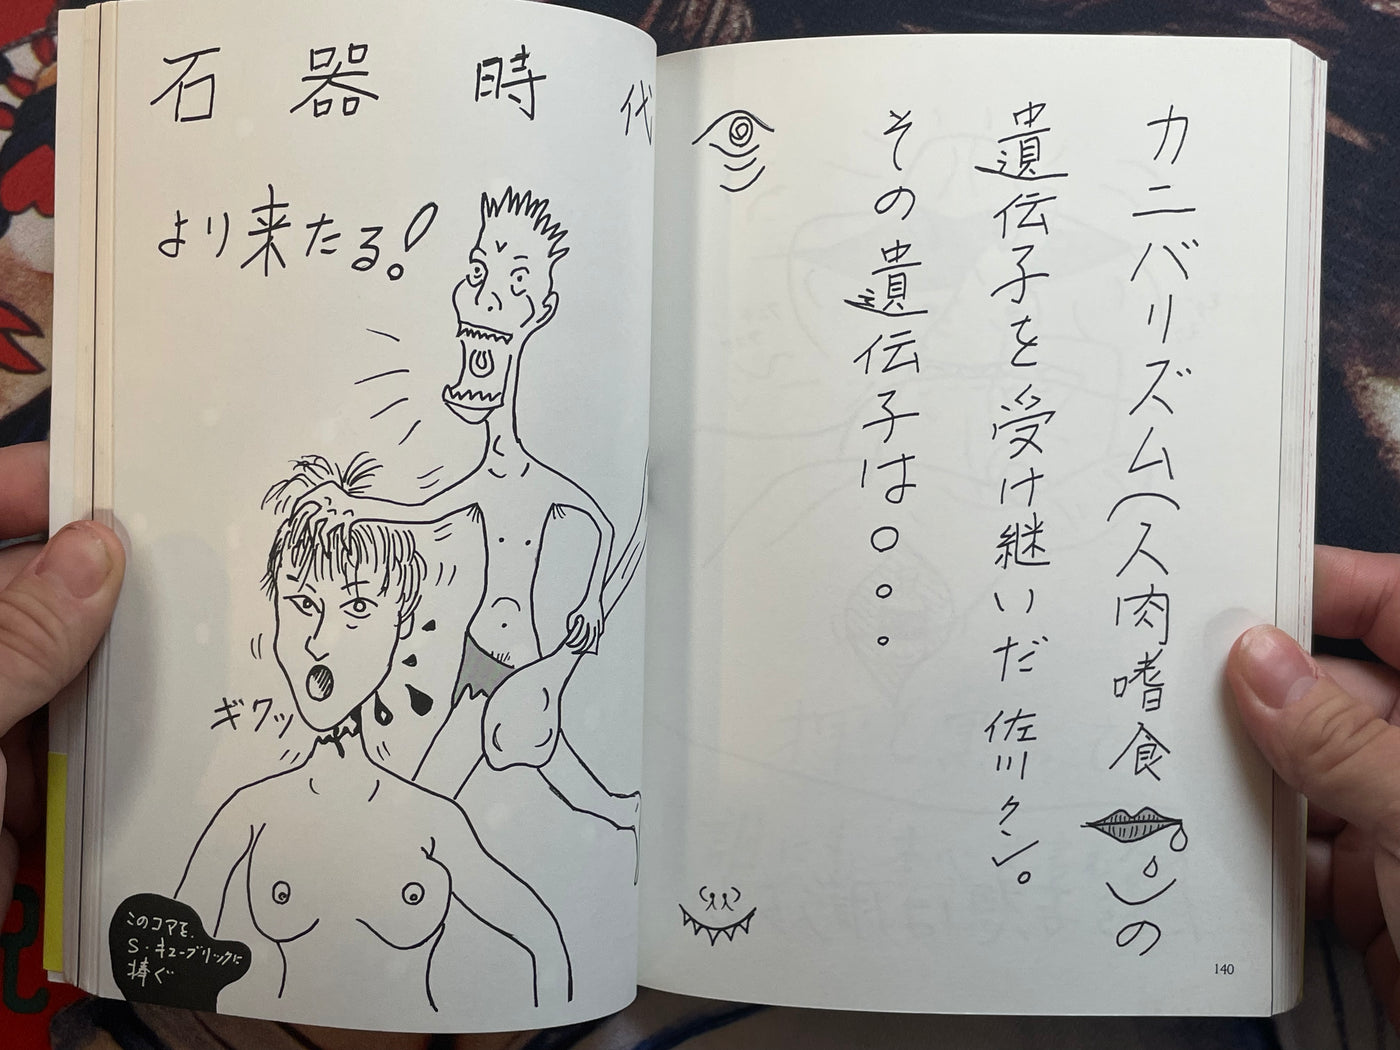 カニバリズム(人肉嗜食)の
遺伝子を受け継いだ佐川クン。
その遺伝子は。。。
140
石器時代
より来たる!
ギクッ
このコアを、
S・キューブリックに
捧ぐ